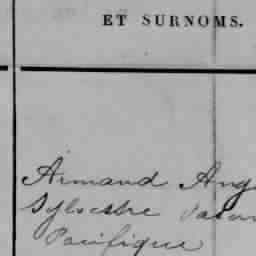 ET SURNOMS.
Armand Ang
Sylvestre
Pacifique